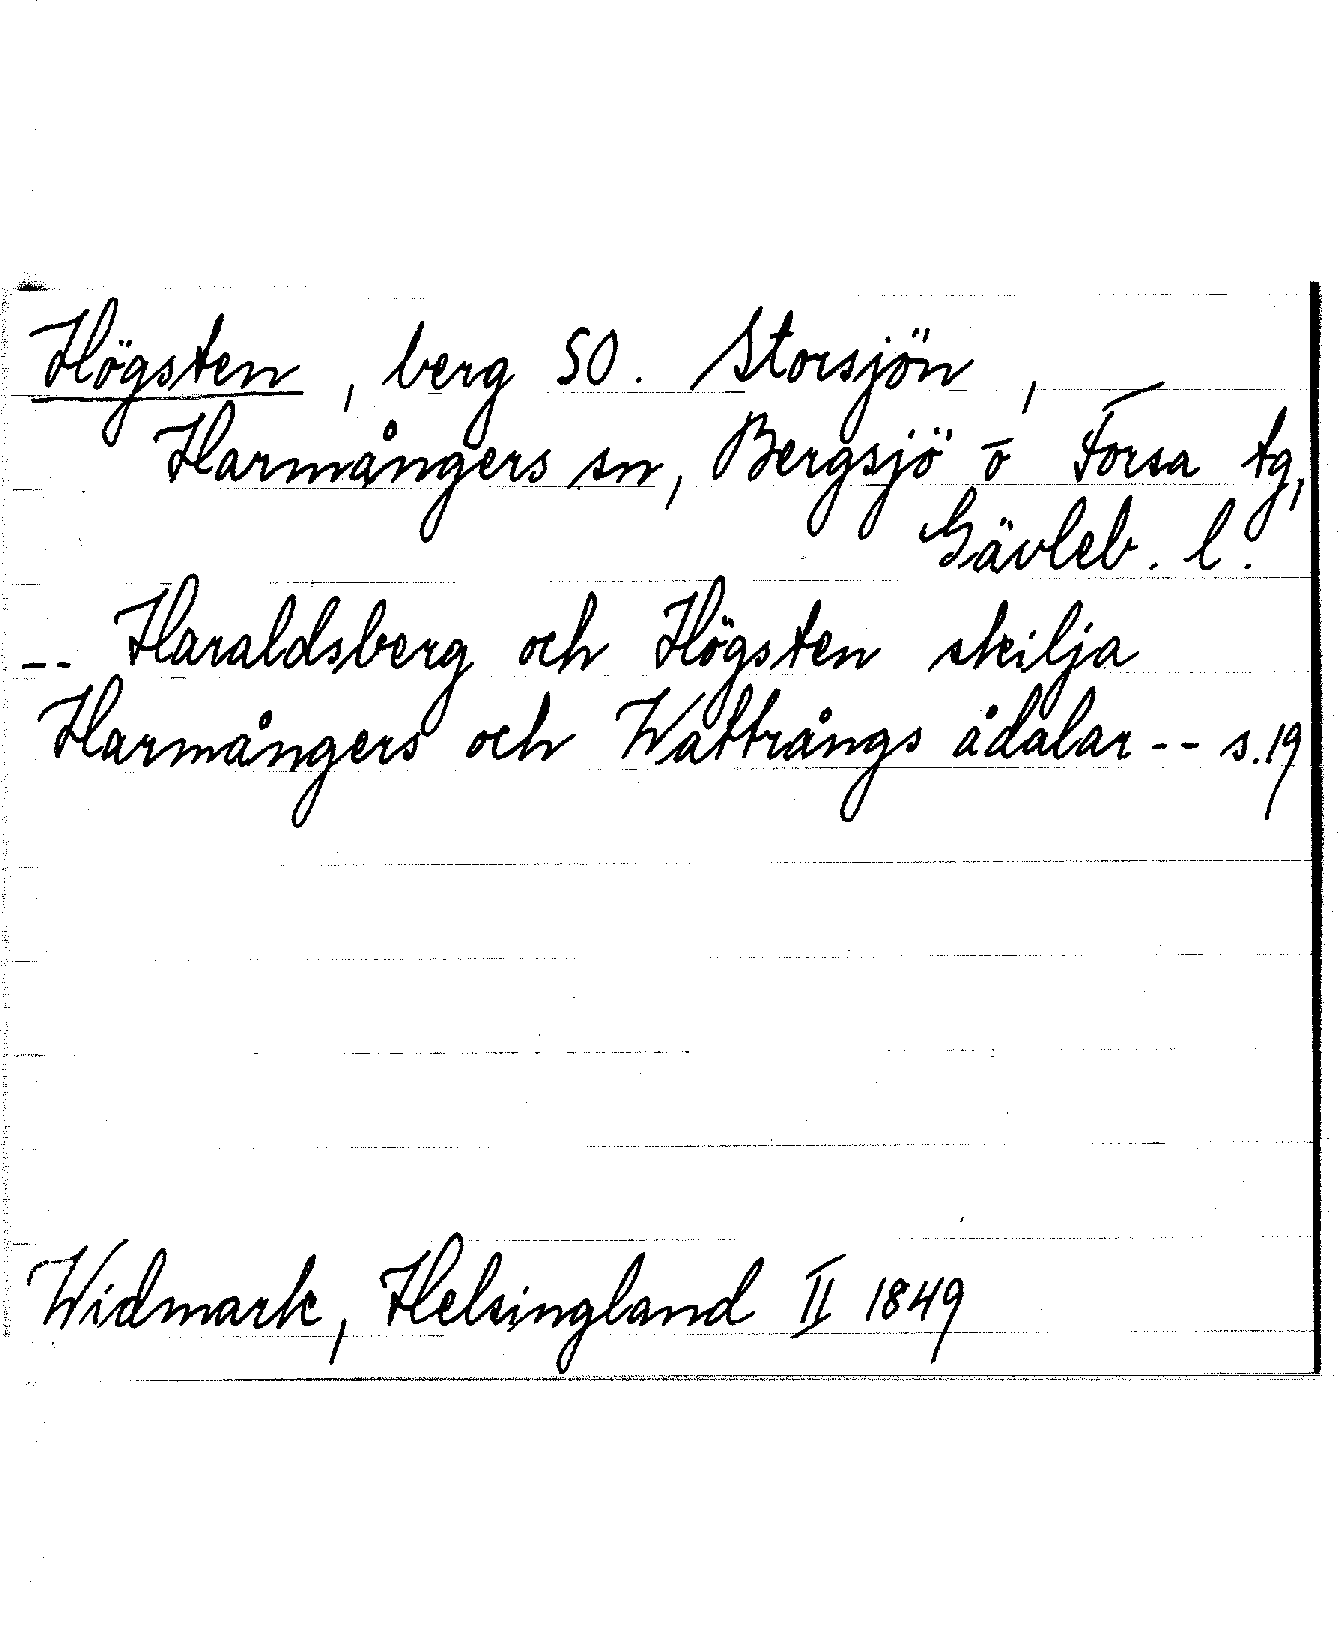 Högsten, berg SO. Storsjön,
Harmångers sn, Bergsjö o Forsa tg,
Gävleb. l.
-- Haraldsberg och Högsten skilja
Harmångers och Wattrångs ådalar -- s. 19
Widmark, Helsingland II 1849